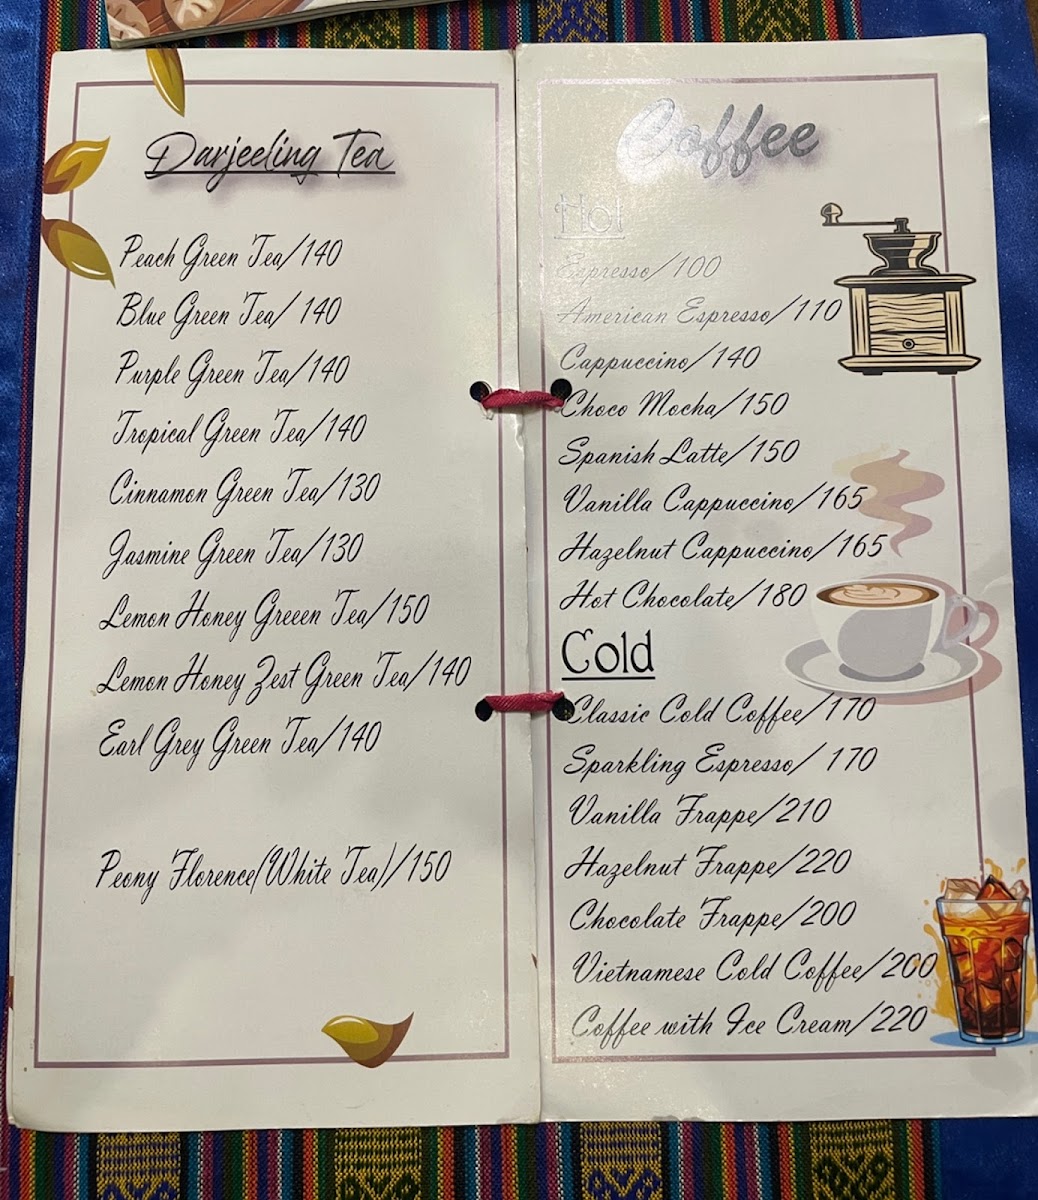 Darjeeling Tea
Peach Green Tea/140
Blue Green Tea/ 140
Purple Green Tea/140
Tropical Green Tea/140
Cinnamon Green Tea/130
Jasmine Green Tea/130
Lemon Honey Greeen Tea/150
Lemon Honey Zest Green Tea/140
Earl Grey Green Tea/140
Peony Florence(White Tea)/150
Coffee
Hot
Espresso/100
American Espresso/110
Cappuccino/140
Choco Mocha/150
Spanish Latte/150
Vanilla Cappuccino/165
Hazelnut Cappuccino/165
Hot Chocolate/180
Cold
Classic Cold Coffee/170
Sparkling Espresso/ 170
Vanilla Frappe/210
Hazelnut Frappe/220
Chocolate Frappe/200
Vietnamese Cold Coffee/200
Coffee with Ice Cream/220